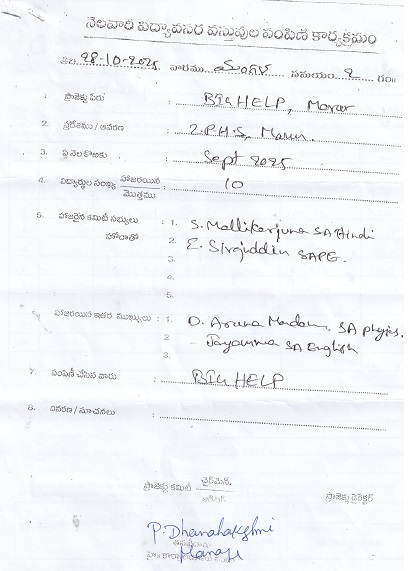 నెలవారి విద్యావసర వస్తువుల పంపిణి కార్యక్రమం
తేది 28-10-2025 వారము మంగళ సమయం 2 గం॥
1. ప్రాజెక్టు పేరు : BIG HELP,
2. ప్రదేశము / ఆవరణ : Z.P.H.S,
3. ఏ నెల కొఱకు : Sept 2025
4. విద్యార్థుల సంఖ్య హాజరయిన / మొత్తము : 10
5. హాజరైన కమిటీ సభ్యులు : 1. S. Mallikarjuna SA Hindi
హోదాతో 2. E. Sirajuddin SAPE.
3.
4.
5.
6. హాజరయిన ఇతర ముఖ్యులు : 1. D. Aruna Madam SA phyics.
2. Jayamma SA English
3.
7. పంపిణీ చేసిన వారు : BIG HELP
8. వివరణ / సూచనలు :
ప్రాజెక్టు కమిటీ చైర్మెన్. ప్రాజెక్టు డైరెక్టర్
P. Dhanalakshmi